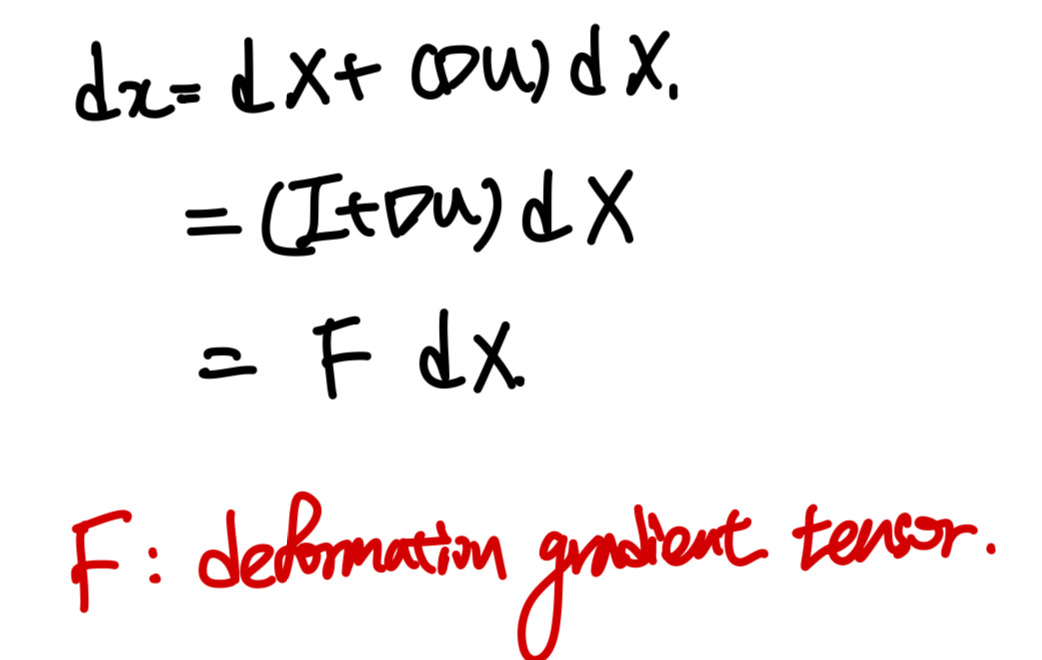 dx = dX + (∇u) dX.
= (I + ∇u) dX
= F dX.
F: deformation gradient tensor.